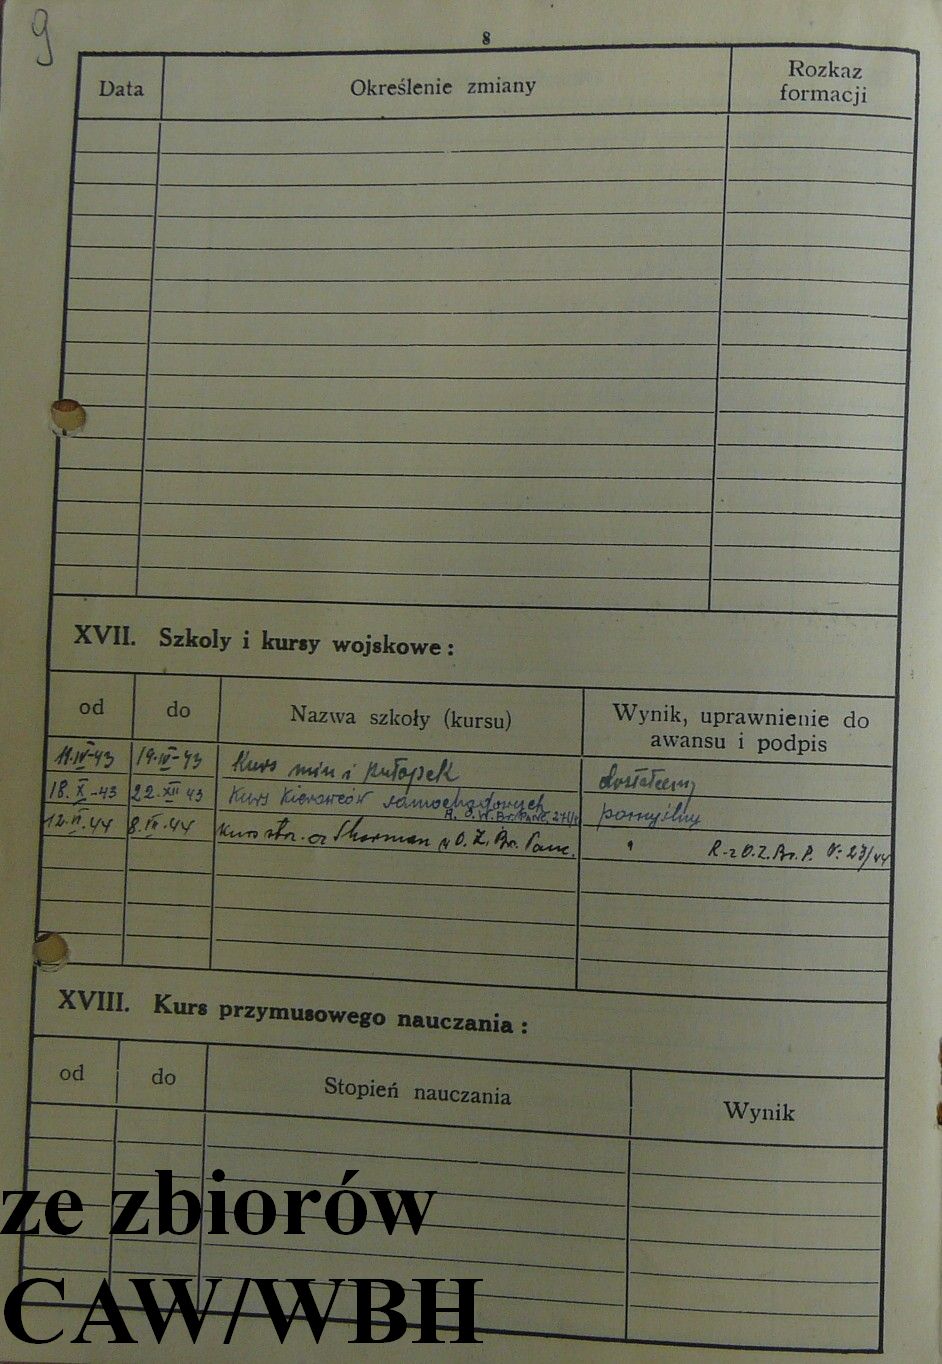 9
8
Data Określenie zmiany Rozkaz formacji
XVII. Szkoly i kursy wojskowe:
od do Nazwa szkoły (kursu) Wynik, uprawnienie do awansu i podpis
11.IV-43 19.IV-43 Kurs min i pułapek dostateczny
18.X-43 22.XII 43 Kurs Kierowców samochodowych pomyślny
R. O.W. Br. Panc. 271/
12.II.44 8.III.44 Kurs str. cz Sherman w O.Z. Br. Panc. " R-z O.Z. Br. P. Nr 27/44
XVIII. Kurs przymusowego nauczania:
od do Stopień nauczania Wynik
ze zbiorów
CAW/WBH